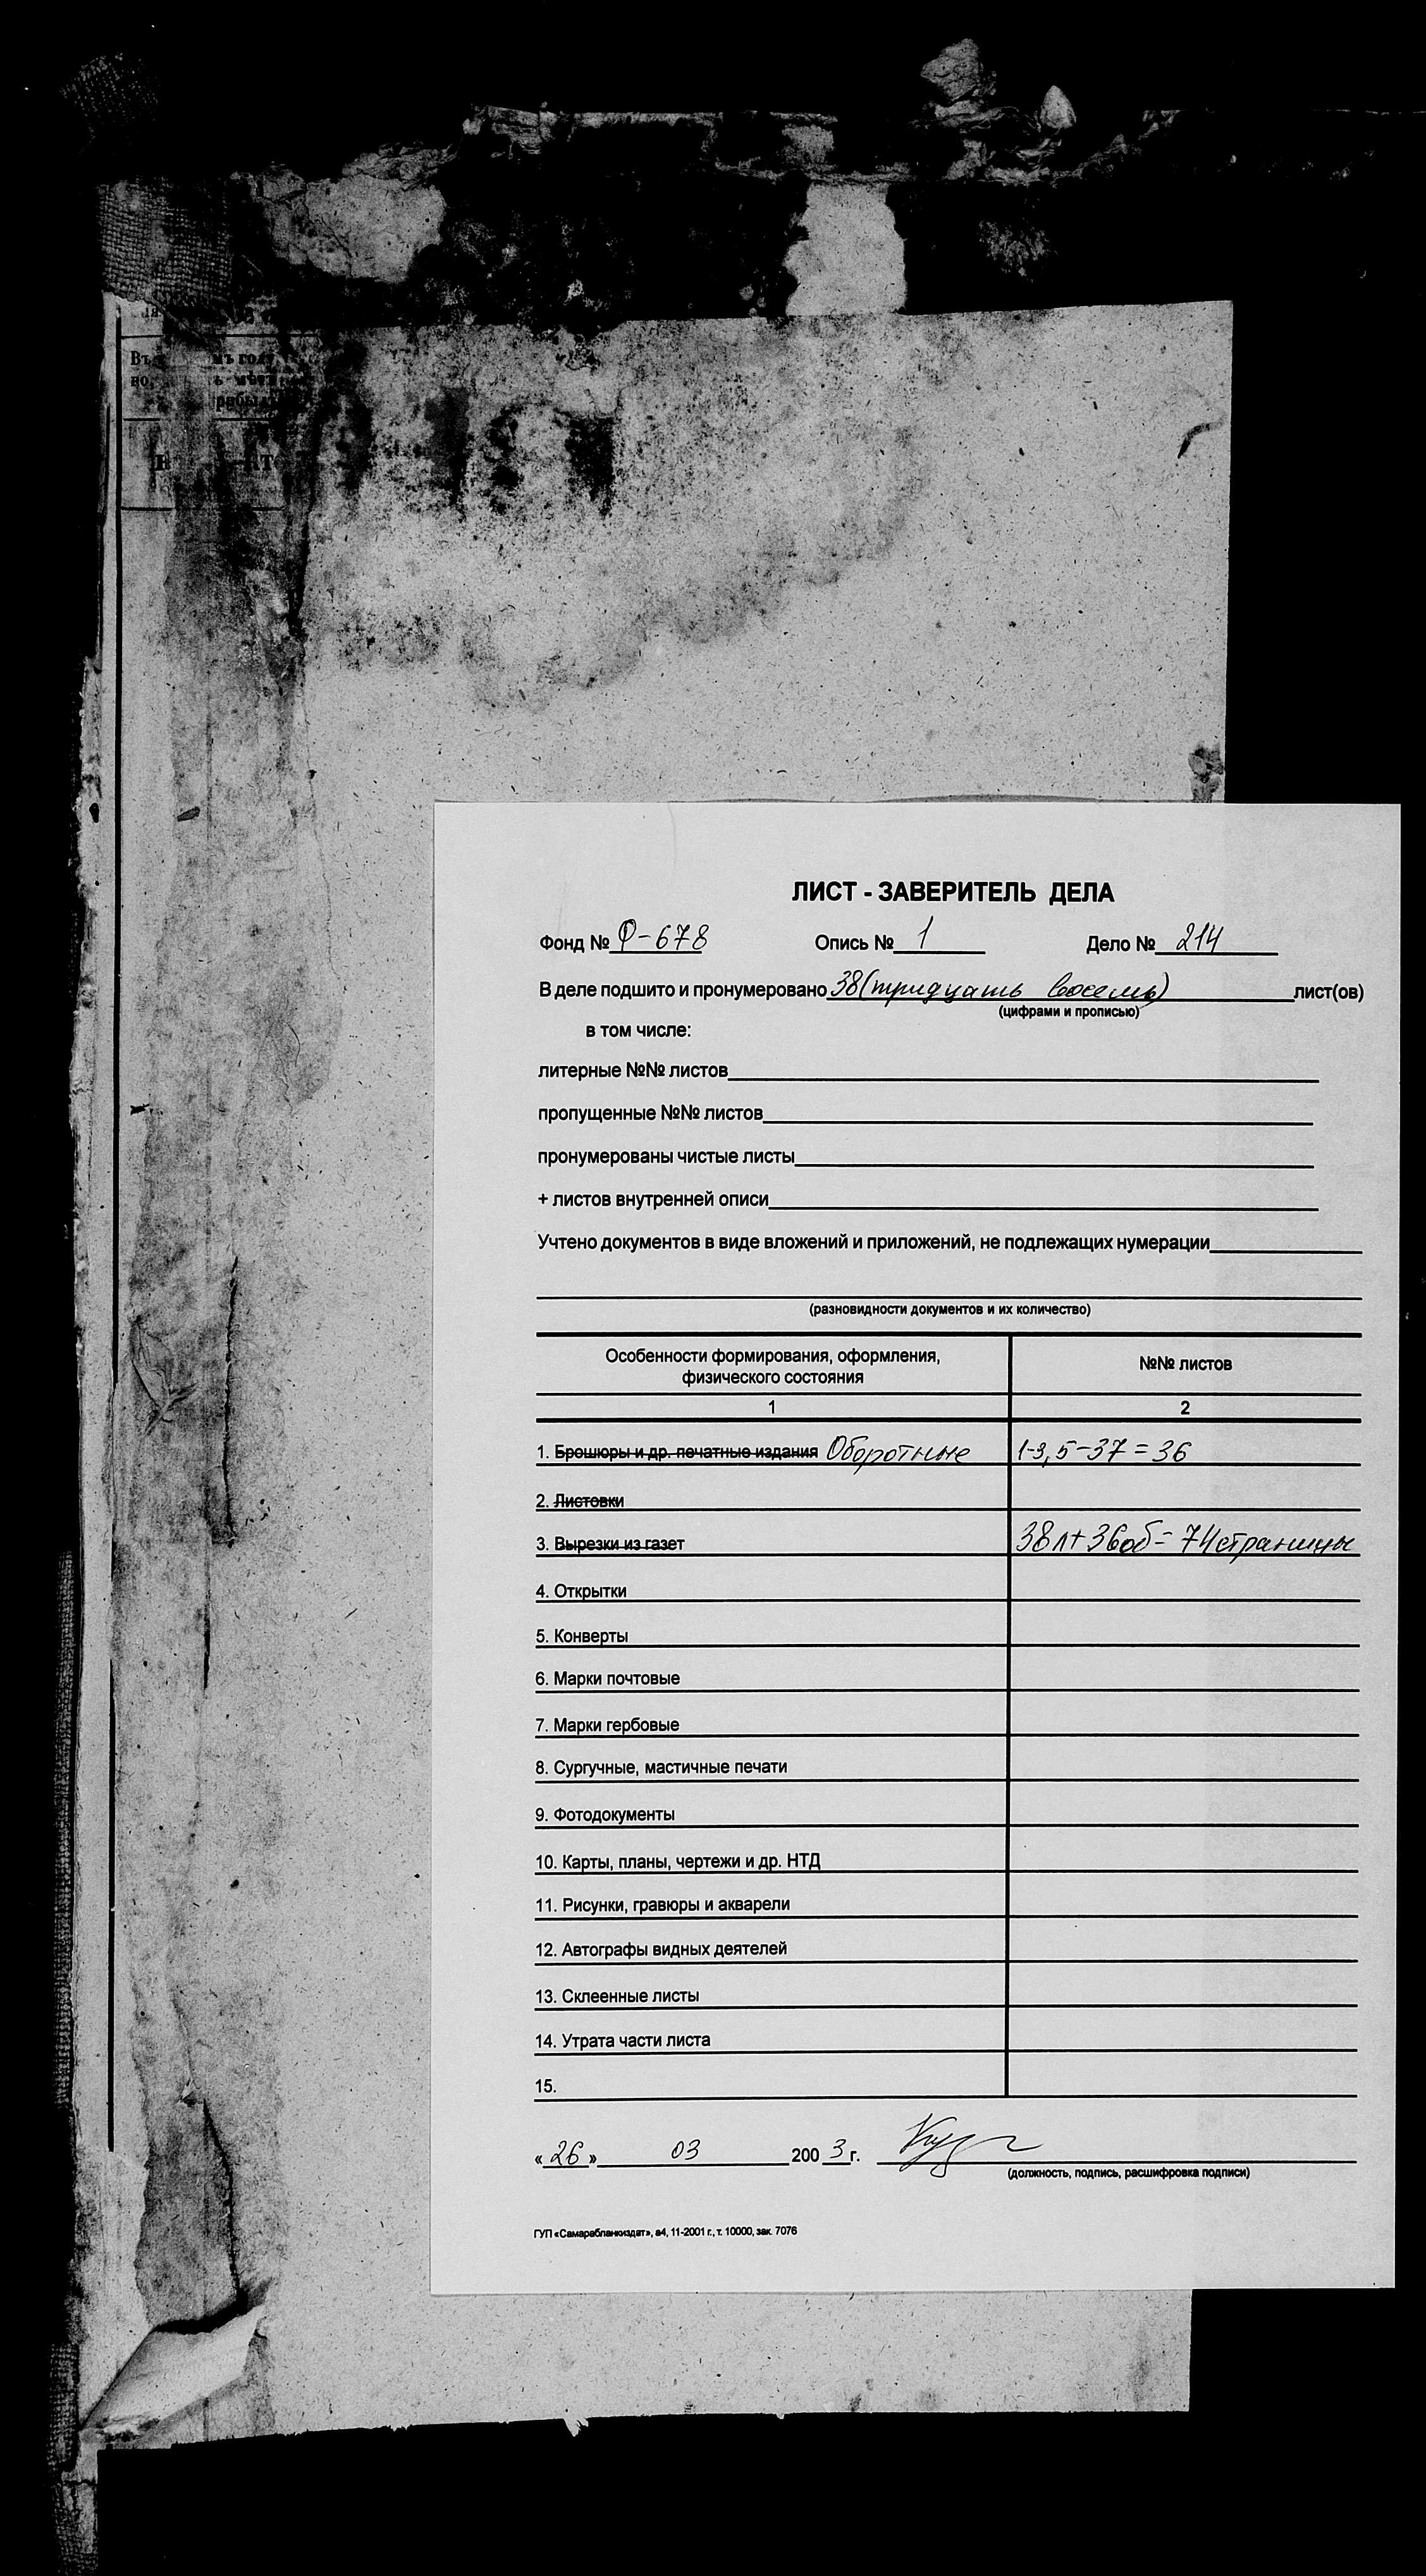 мъ году
ЛИСТ - ЗАВЕРИТЕЛЬ ДЕЛА
Фонд № Ф-678 Опись № 1 Дело № 214
В деле подшито и пронумеровано 38 (тридцать восемь) лист(ов)
(цифрами и прописью)
в том числе:
литерные №№ листов
пропущенные №№ листов
пронумерованы чистые листы
+ листов внутренней описи
Учтено документов в виде вложений и приложений, не подлежащих нумерации
(разновидности документов и их количество)
Особенности формирования, оформления, №№ листов
физического состояния
1 2
1. Брошюры и др. печатные издания Оборотные 1-3, 5-37 = 36
2. Листовки
3. Вырезки из газет 38л+36об= 74страницы
4. Открытки
5. Конверты
6. Марки почтовые
7. Марки гербовые
8. Сургучные, мастичные печати
9. Фотодокументы
10. Карты, планы, чертежи и др. НТД
11. Рисунки, гравюры и акварели
12. Автографы видных деятелей
13. Склеенные листы
14. Утрата части листа
15.
« 26 » 03 200 3 г.
(должность, подпись, расшифровка подписи)
ГУП «Самарабланкиздат», а4, 11-2001 г., т. 10000, зак. 7076